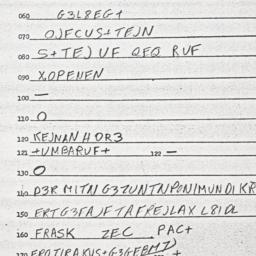 060 G3L8EG+
070 OJFCUS+TEJN
080 S+TEJUF QFQ RUF
090 XOPENEN
100 —
110 O
120 KEJNAN HOR3
121 +UMBARUF+ 122 —
130 O
140 D3R MITN G3ZUNTN PONIMUNDI KR
150 ERTG3FAJFTAFREJLAX L8IDL
160 FRASK ZEC PAC+